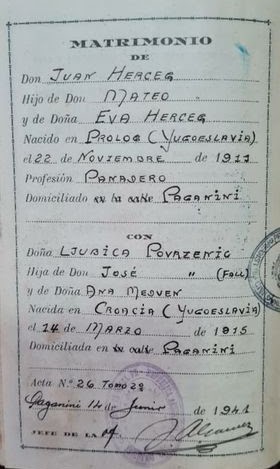 MATRIMONIO
DE
Don JUAN HERCEG
Hijo de Don MATEO "
y de Doña EVA HERCEG
Nacido en PROLOG (YUGOESLAVIA)
el 22 de NOVIEMBRE de 1911
Profesión PANADERO
Domiciliado en la calle PAGANINI
CON
Doña LJUBICA POVRZENIC
Hija de Don JOSÉ " (FALL)
y de Doña ANA
Nacida en CROACIA (YUGOESLAVIA)
el 14 de MARZO de 1915
Domiciliada en la calle PAGANINI
Acta N.º 26 TOMO 2º
Paganini 14 de Junio de 1941
JEFE DE LA